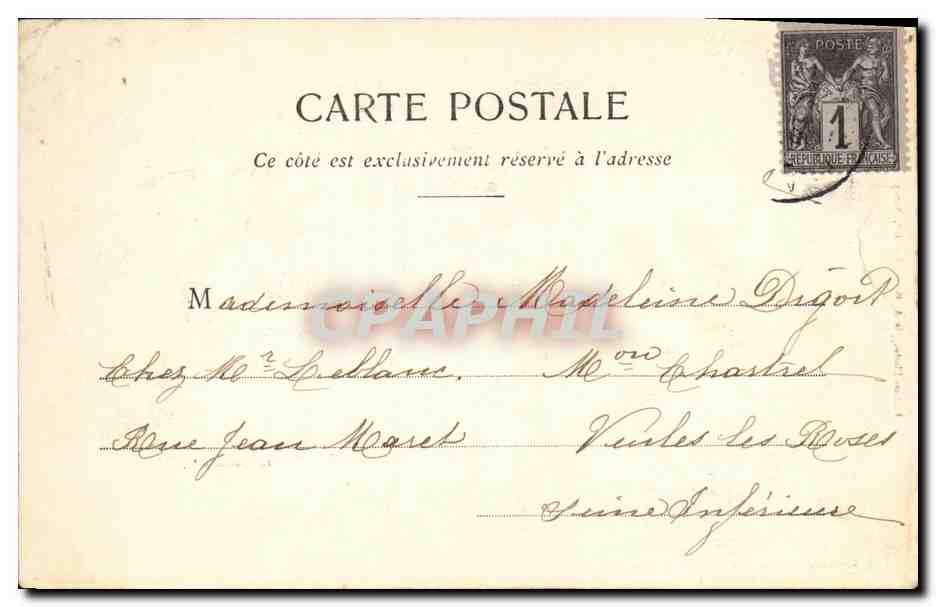 POSTE
1
REPUBLIQUE FRANÇAISE
CARTE POSTALE
Ce côté est exclusivement réservé à l'adresse
Mademoiselle Madeleine Digoit
CPAPHIL
Chez Mr Leblanc. Mon Chartrel
Rue Jean Maret Veules les Roses
Seine Inférieure